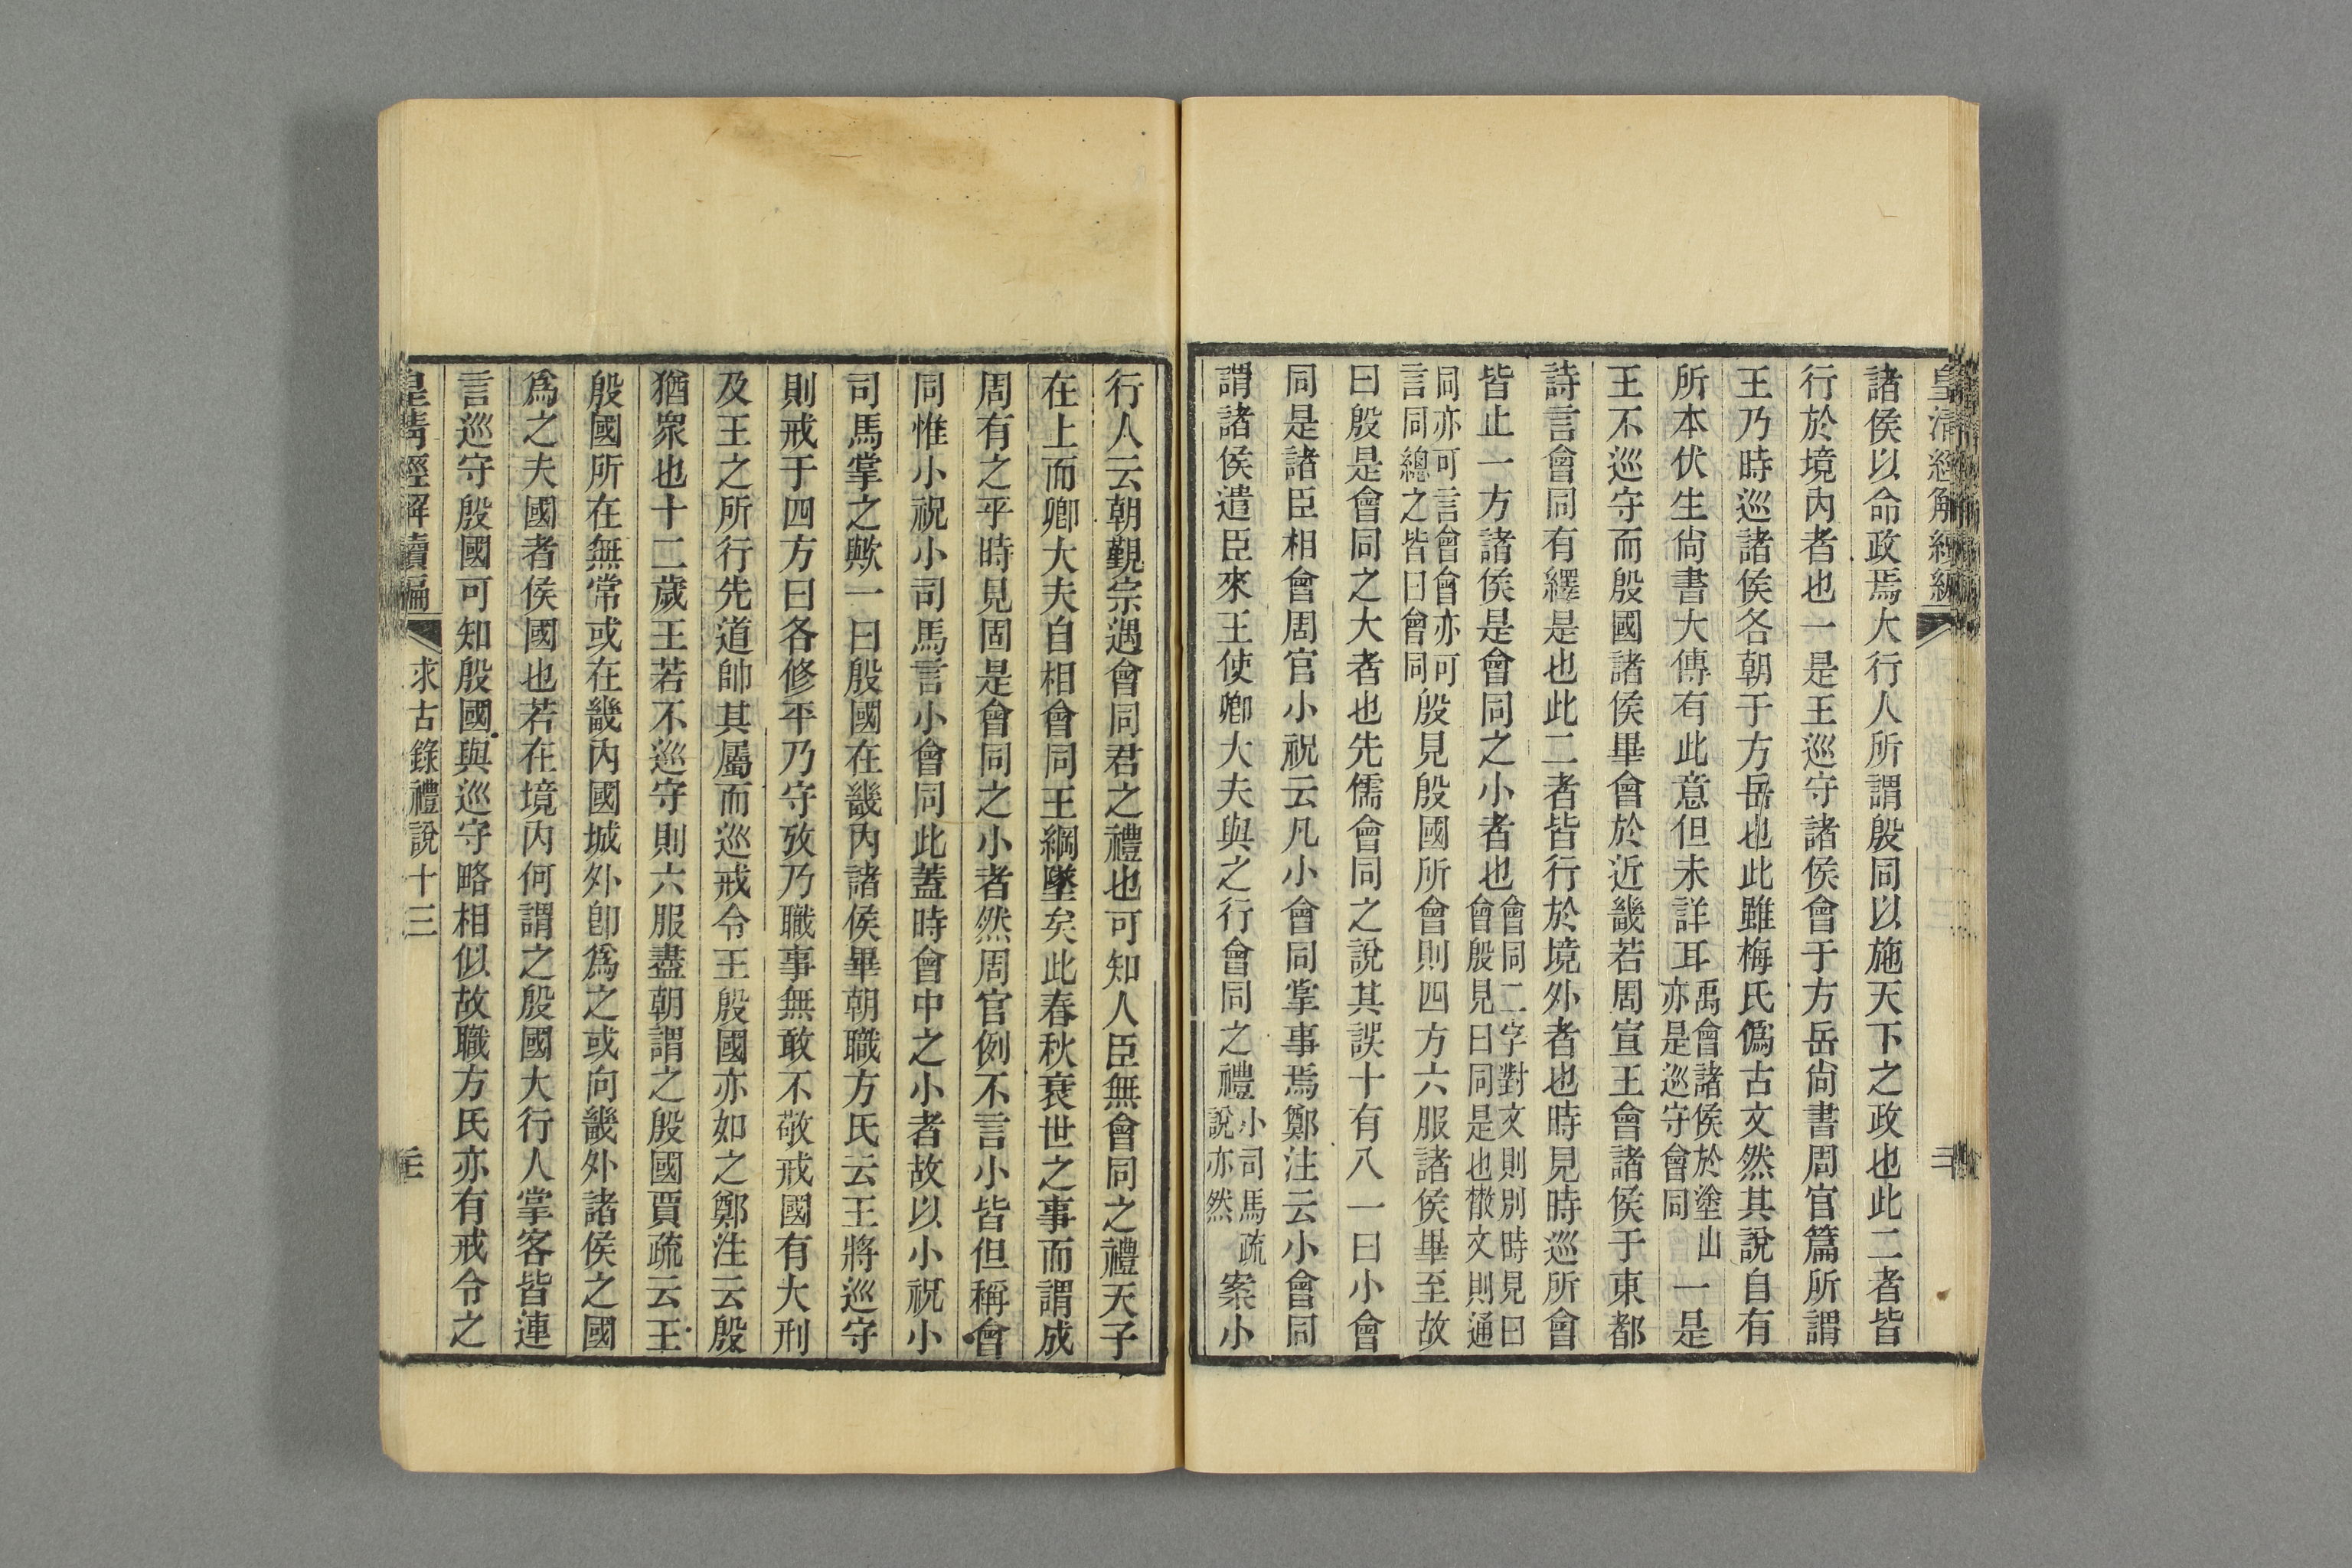 皇清經解續編
二
諸侯以命政焉大行人所謂殷同以施天下之政也此二者皆
行於境內者也一是王巡守諸侯會于方岳尙書周官篇所謂
王乃時巡諸侯各朝于方岳也此雖梅氏僞古文然其說自有
所本伏生尙書大傳有此意但未詳耳禹會諸侯於塗山亦是巡守會同一是
王不巡守而殷國諸侯畢會於近畿若周宣王會諸侯于東都
詩言會同有繹是也此二者皆行於境外者也時見時巡所會
皆止一方諸侯是會同之小者也會同二字對文則別時見曰會殷見曰同是也散文則通
同亦可言會會亦可言同總之皆曰會同殷見殷國所會則四方六服諸侯畢至故
曰殷是會同之大者也先儒會同之說其誤十有八一曰小會
同是諸臣相會周官小祝云凡小會同掌事焉鄭注云小會同
謂諸侯遣臣來王使卿大夫與之行會同之禮小司馬疏說亦然案小
行人云朝覲宗遇會同君之禮也可知人臣無會同之禮天子
在上而卿大夫自相會同王綱墜矣此春秋衰世之事而謂成
周有之乎時見固是會同之小者然周官例不言小皆但稱會
同惟小祝小司馬言小會同此蓋時會中之小者故以小祝小
司馬掌之歟一曰殷國在畿內諸侯畢朝職方氏云王將巡守
則戒于四方曰各修平乃守攷乃職事無敢不敬戒國有大刑
及王之所行先道帥其屬而巡戒令王殷國亦如之鄭注云殷
猶眾也十二歲王若不巡守則六服盡朝謂之殷國賈疏云王
殷國所在無常或在畿內國城外卽爲之或向畿外諸侯之國
爲之夫國者侯國也若在境內何謂之殷國大行人掌客皆連
言巡守殷國可知殷國與巡守略相似故職方氏亦有戒令之
皇清經解續編
求古錄禮說十三